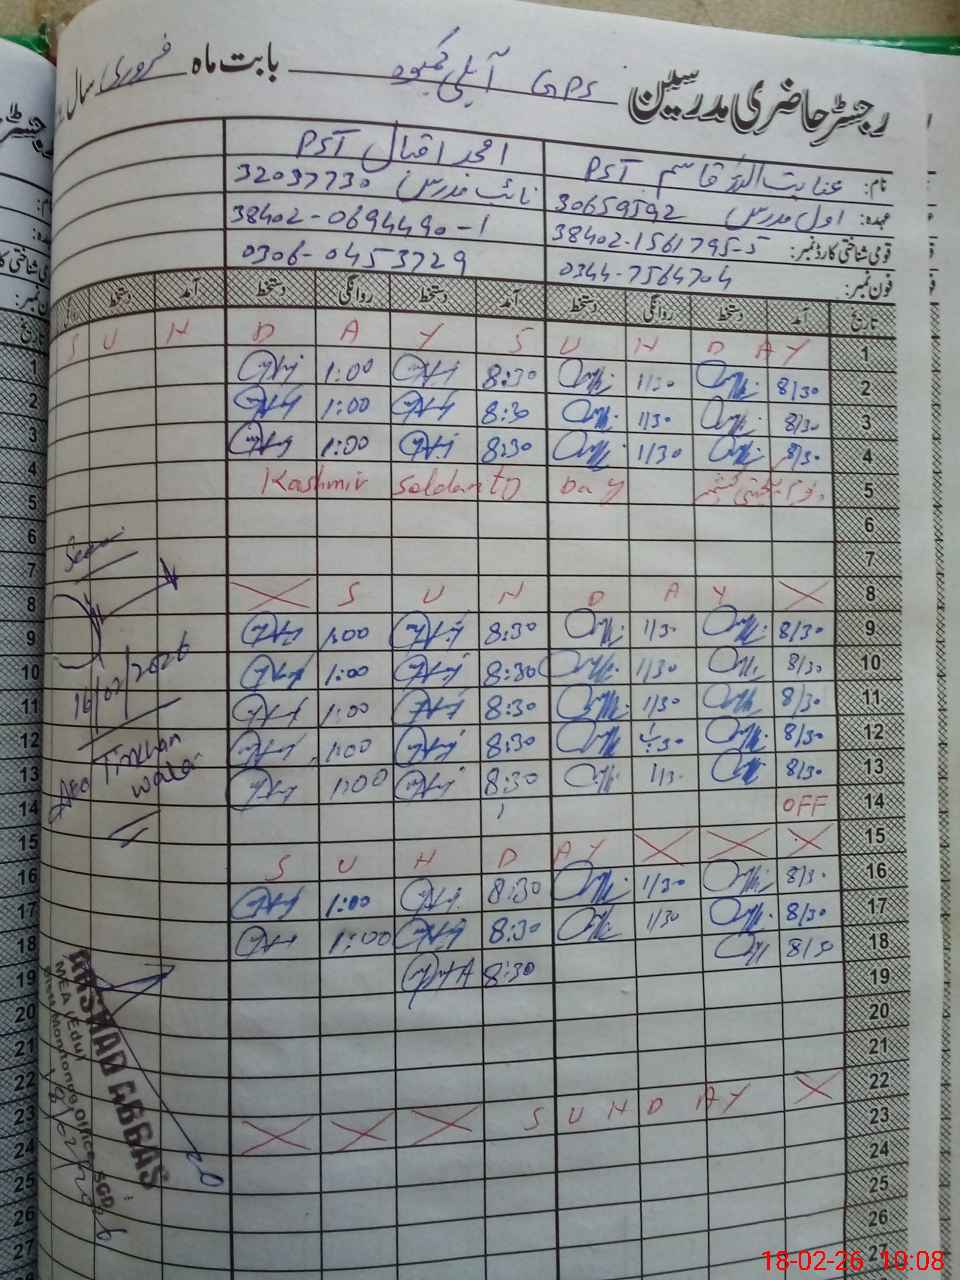 رجسٹر حاضری مدرسین GPS آہلی کمبوہ بابت ماہ فروری سال
نام: عنایت اللہ قاسم PST امجد اقبال PST
عہدہ: اول مدرس 30659592 نائب مدرس 32037730
قومی شناختی کارڈ نمبر: 38402-1561795-5 38402-0694490-1
فون نمبر: 0344-7564704 0306-0453729
تاریخ آمد دستخط روانگی دستخط آمد دستخط روانگی دستخط آمد دستخط روانگی
1 S U N D A Y S U N D A Y
2 8/30 1/30 8:30 1:00
3 8/30 1/30 8:30 1:00
4 8/30 1/30 8:30 1:00
5 Kashmir Soldarity Day
6
7
8 S U N D A Y
9 8/30 1/30 8:30 1:00
10 8/30 1/30 8:30 1:00
11 8/30 1/30 8:30 1:00
12 8/30 1/30 8:30 1:00
13 8/30 1/30 8:30 1:00
14 OFF
15 S U N D A Y
16 8/30 1/30 8:30 1:00
17 8/30 1/30 8:30 1:00
18 8/30 8:30
19
20
21
22 S U N D A Y
23
24
25
26
27
Seen
16/02/2026
AEO Tirkhan
wala
ARSHAD ABBAS
MEA (Edu)
Monitoring Office SGD
18/02/2026
18-02-26 10:08